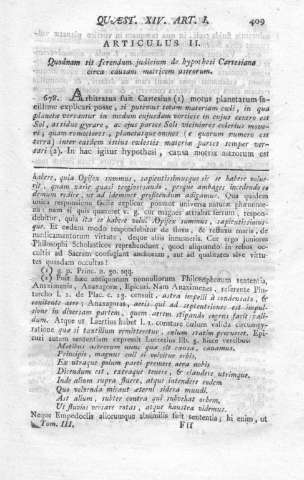 QUÆST. XIV. ART. I. 409
ARTICULUS II.
Quodnam sit ferendum judicium de hypothesi Cartesiana
circa causam motricem astrorum.
678. Arbitratus fuit Cartesius (1) motus planetarum fa-
cillime explicari posse, si putemus totam materiam cœli, in qua
planetæ versantur in modum cujusdam vorticis in cujus centro est
Sol, assidue gyrare, ac ejus partes Soli viciniores celerius move-
ri, quam remotiores, planetasque omnes (e quarum numero est
terra) inter easdem istius cœlestis materiæ partes semper ver-
sari (2). In hac igitur hypothesi, causa motrix astrorum est
habere, quia Opifex summus, sapientissimusque sic se habere volue-
rit, quam variis quasi tergiversando, perque ambages incedendo eo
demum redire, ut ad idemmet profitendum adigamur. Qua quidem
unica responsione facile explicari possunt universa naturæ phænome-
na: nam si quis quærat v. g. cur magnes attrahat ferrum, respon-
debitur, quia ita se habere voluit Opifex summus, sapientissimus-
que. Et eodem modo respondebitur de fluxu, & refluxu maris, de
medicamentorum virtute, deque aliis innumeris. Cur ergo juniores
Philosophi Scholasticos reprehendunt, quod aliquando in rebus oc-
cultis ad Sacram confugiant anchoram, aut ad qualitates sive virtu-
tes quasdam occultas?
(1) 3. p. Princ. n. 30. sqq.
(2) Fuit hæc antiquorum nonnullorum Philosophorum sententia,
Anaximenis, Anaxagoræ, Epicuri. Nam Anaximenes, referente Plu-
tarcho l. 2. de Plac. c. 23. censuit, astra impelli a condensato, &
renitente aere; Anaxagoras, aeris qui ad septentriones est impul-
sione in diversam partem, quem arctum stipando cogens facit vali-
dum. Atque ut Laertius habet l. 2. constare cœlum valida circumgy-
ratione qua si tantillum remitteretur, cœlum statim procueret. Epi-
curi autem sententiam exprimit Lucretius lib. 5. hisce versibus:
Motibus astrorum nunc quæ sit causa, canamus.
Principio, magnus cœli si volvitur orbis,
Ex utraque polum parti premere aera nobis
Dicendum est, extraque tenere, & claudere utrimque.
Inde alium supra fluere, atque intendere eodem
Quo volvenda micant æterni sidera mundi.
Ast alium, subter contra qui subvehat orbem,
Ut fluvios versare rotas, atque haustra videmus.
Neque Empedoclis aliorumque absimilis fuit sententia; hi enim, ut
Tom. III. Fff